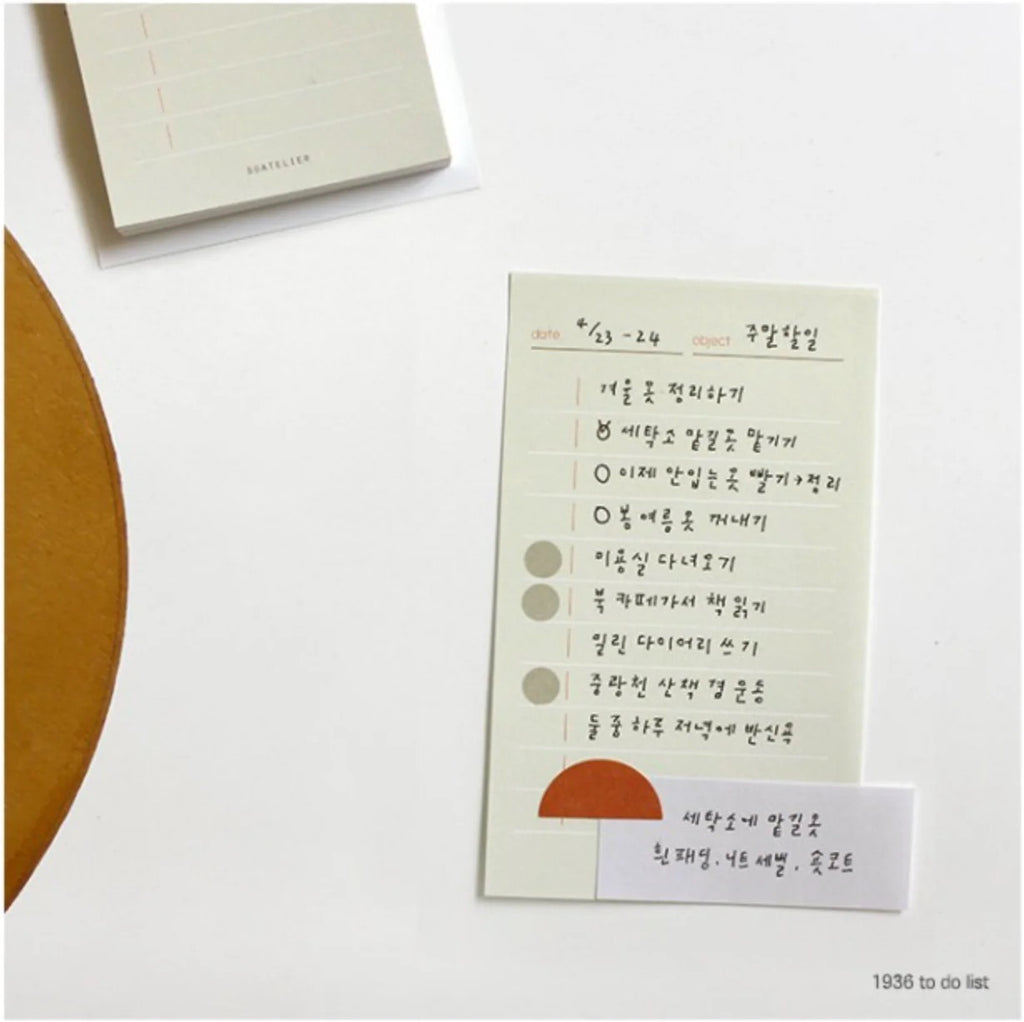 DOATELIER
date 4/23 - 24 object 주말할일
겨울 옷 정리하기
세탁소 맡길옷 맡기기
이제 안입는옷 빨기→정리
봄 여름 옷 꺼내기
미용실 다녀오기
북 카페가서 책 읽기
밀린 다이어리 쓰기
중랑천 산책 겸 운동
둘 중 하루 저녁에 반신욕
세탁소에 맡길옷
흰 패딩, 니트 세벌, 숏코트
1936 to do list